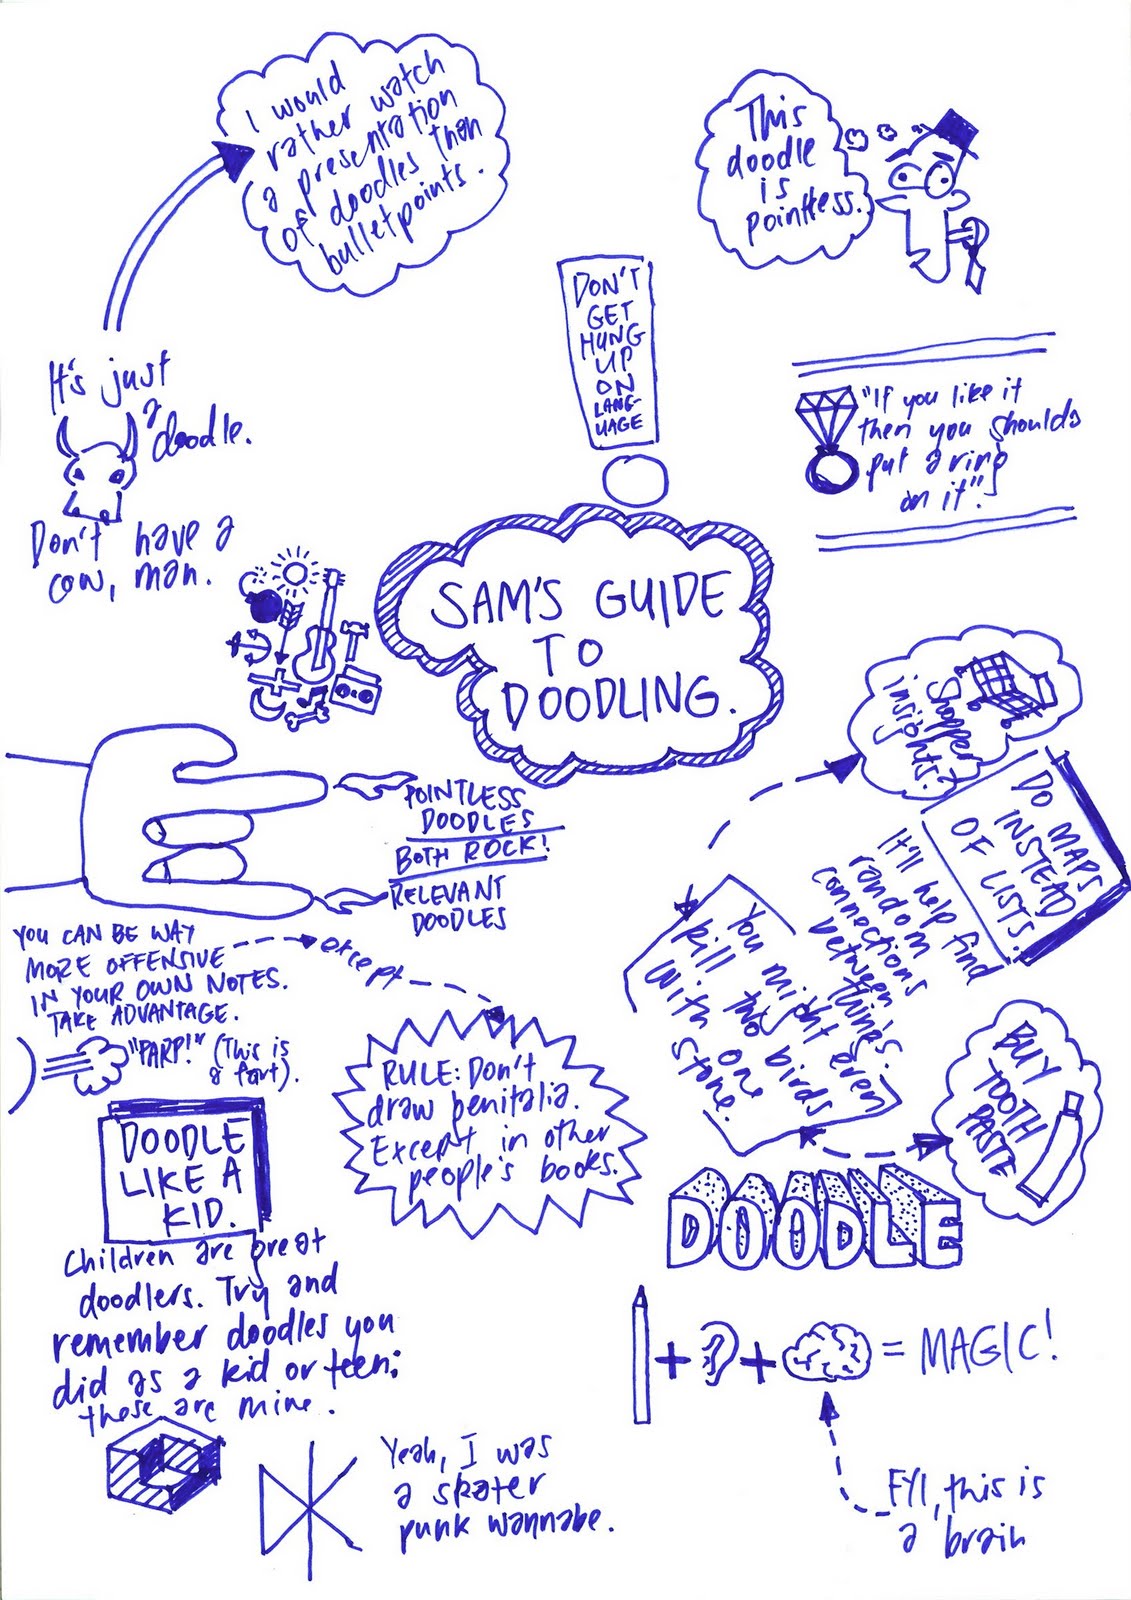 I would
rather watch
a presentation
of doodles than
bulletpoints.
This
doodle
is
pointless.
DON'T
GET
HUNG
UP
ON
LANG-
UAGE
It's just
a doodle.
Don't have a
cow, man.
"If you like it
then you shoulda
put a ring
on it".
SAM'S GUIDE
TO
DOODLING.
Shopper
insights?
DO MAPS
INSTEAD
OF LISTS.
It'll help find
random
connections
between
things.
You might even
kill two birds
with one
stone.
BUY
TOOTH
PASTE
POINTLESS
DOODLES
BOTH ROCK!
RELEVANT
DOODLES
YOU CAN BE WAY
MORE OFFENSIVE
IN YOUR OWN NOTES.
TAKE ADVANTAGE.
except
"PARP!" (This is
a fart).
RULE: Don't
draw genitalia.
Except in other
people's books.
DOODLE
LIKE A
KID.
Children are great
doodlers. Try and
remember doodles you
did as a kid or teen;
these are mine.
Yeah, I was
a skater
punk wannabe.
DOODLE
+ + = MAGIC!
FYI, this is
a brain